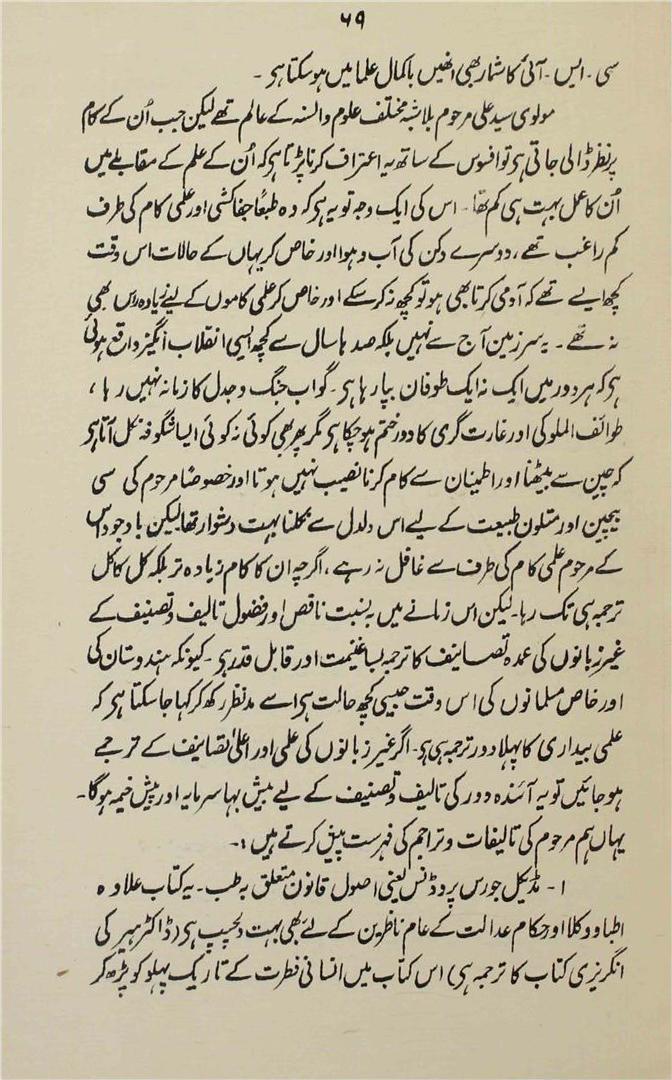 ۶۹
سی ۔ ایس ۔ آئی کا شمار بھی انھیں باکمال علما میں ہوسکتا ہو ۔
مولوی سید علی مرحوم بلاشبہ مختلف علوم و السنہ کے عالم تھے لیکن جب اُن کے کام
پر نظر ڈالی جاتی ہو تو افسوس کے ساتھ یہ اعتراف کرنا پڑتا ہو کہ اُن کے علم کے مقابلے میں
اُن کا عمل بہت ہی کم تھا ۔ اس کی ایک وجہ تو یہ ہو کہ وہ طبعاً جفاکشی اور علمی کام کی طرف
کم راغب تھے ، دوسرے دکن کی آب و ہوا اور خاص کر یہاں کے حالات اس وقت
کچھ ایسے تھے کہ آدمی کرتا بھی ہو تو کچھ نہ کرسکے اور خاص کر علمی کاموں کے لیے زیادہ راس بھی
نہ تھے ۔ یہ سرزمین آج سے نہیں بلکہ صدہا سال سے کچھ ایسی انقلاب انگیز واقع ہوئی
ہو کہ ہر دور میں ایک نہ ایک طوفان بپا رہا ہو ۔ گو اب جنگ و جدل کا زمانہ نہیں رہا ،
طوائف الملوکی اور غارت گری کا دور ختم ہوچکا ہو مگر پھر بھی کوئی نہ کوئی ایسا شگوفہ نکل آتا ہو
کہ چین سے بیٹھنا اور اطمینان سے کام کرنا نصیب نہیں ہوتا اور خصوصاً مرحوم کی سی
بیچین اور متلون طبیعت کے لیے اس دلدل سے نکلنا بہت دشوار تھا لیکن باوجود اس
کے مرحوم علمی کام کی طرف سے غافل نہ رہے ، اگرچہ ان کا کام زیادہ تر بلکہ کل کا کل
ترجمہ ہی تک رہا ۔ لیکن اس زمانے میں بہ نسبت ناقص اور فضول تالیف و تصنیف کے
غیر زبانوں کی عمدہ تصانیف کا ترجمہ بسا غنیمت اور قابل قدر ہو ۔ کیونکہ ہندوستان کی
اور خاص مسلمانوں کی اس وقت جیسی کچھ حالت ہو اسے مدنظر رکھ کر کہا جاسکتا ہو کہ
علمی بیداری کا پہلا دور ترجمہ ہی ہو ۔ اگر غیر زبانوں کی علمی اور اعلیٰ تصانیف کے ترجمے
ہوجائیں تو یہ آئندہ دور کی تالیف و تصنیف کے لیے بیش بہا سرمایہ اور پیش خیمہ ہوگا ۔
یہاں ہم مرحوم کی تالیفات و تراجم کی فہرست پیش کرتے ہیں :۔
۱ ۔ مڈیکل جورس پروڈنس یعنی اصول قانون متعلق بہ طب ۔ یہ کتاب علاوہ
اطبا و وکلا اور حکام عدالت کے عام ناظرین کے لئے بھی بہت دلچسپ ہو ( ڈاکٹر ہیر کی
انگریزی کتاب کا ترجمہ ہو ) اس کتاب میں انسانی فطرت کے تاریک پہلو کو پڑھ کر